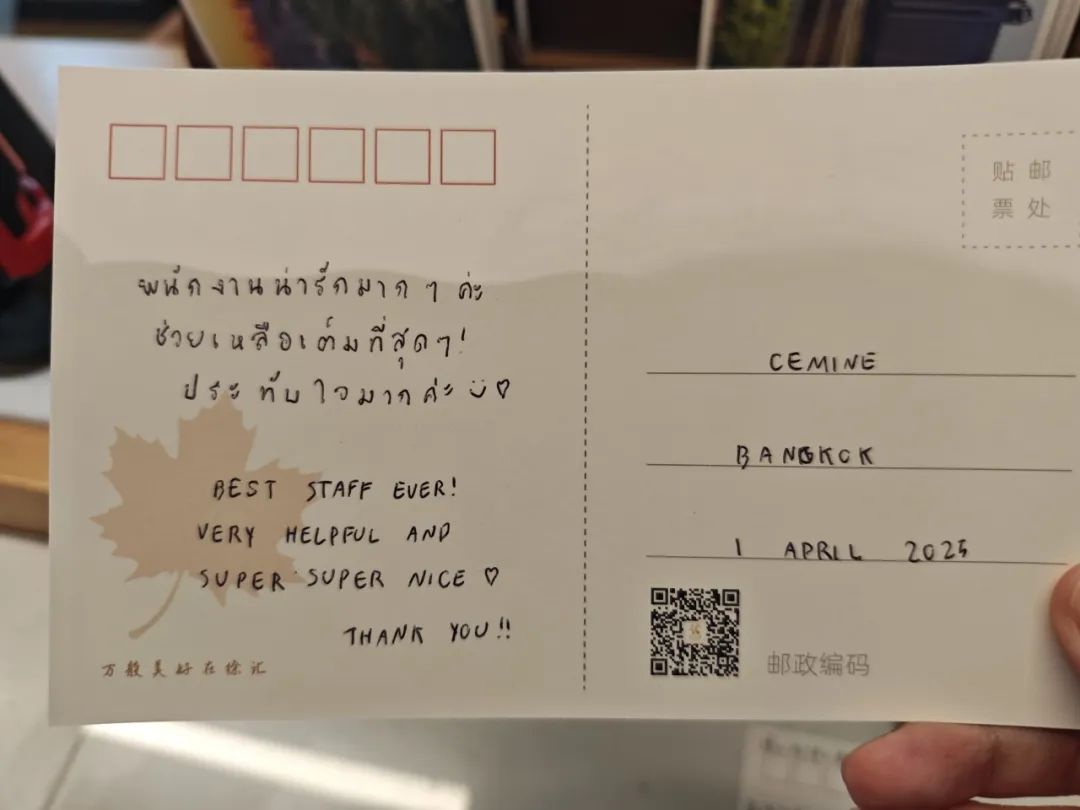 พนักงานน่ารักมากๆ ค่ะ
ช่วยเหลือเต็มที่สุดๆ!
ประทับใจมากค่ะ
BEST STAFF EVER!
VERY HELPFUL AND
SUPER SUPER NICE ♡
THANK YOU!!
万般美好在徐汇
贴邮
票处
CEMINE
BANGKOK
1 APRIL 2025
邮政编码